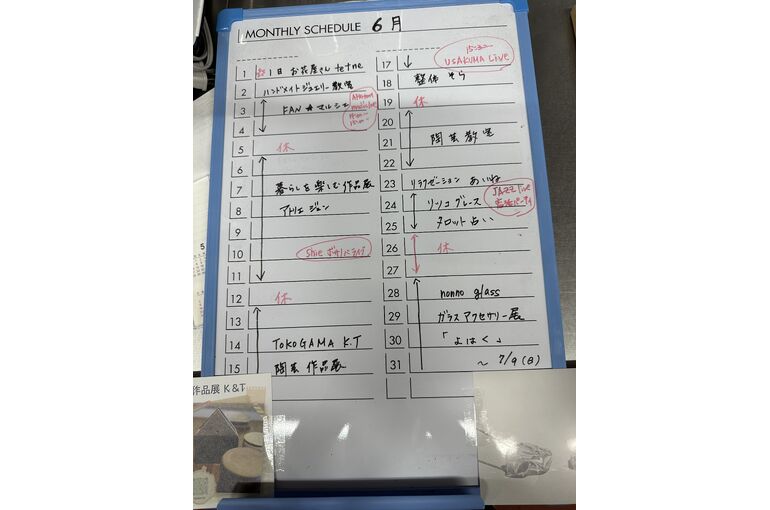 MONTHLY SCHEDULE 6月
1 1日 お花屋さん tetne
2 ハンドメイドジュエリー教室
3 FAN★マルシェ
4
5 休
6
7 暮らしを楽しむ作品展
8 アトリエ ジュン
9
10
11
12 休
13
14 TOKOGAMA K.T
15 陶芸作品展
17
15:30~
USAKUMA Live
18 整体 そら
19 休
20
21 陶芸教室
22
23 リラクゼーション あいね
JAZZ Live
24 リンコ グレース
25 タロット占い
26 休
27
28 nonno glass
29 ガラスアクセサリー展
30 「よはく」
31 ~ 7/9(日)
作品展 K&T
5